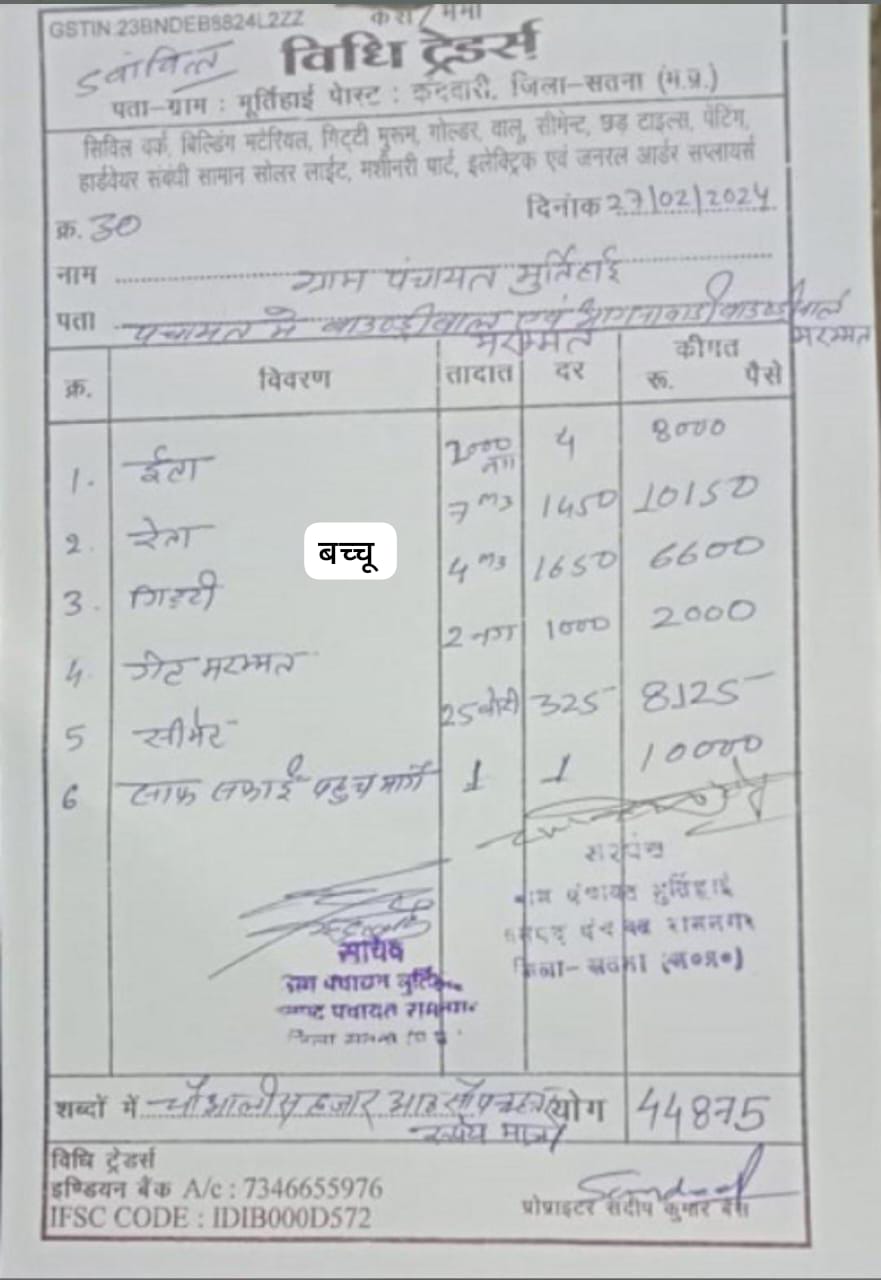 GSTIN:23BNDEB8824L2ZZ
विधि ट्रेडर्स
पता-ग्राम : मूर्तिहाई पोस्ट : कंदवारी, जिला-सतना (म.प्र.)
सिविल वर्क, बिल्डिंग मटेरियल, गिट्टी मुरूम, गोल्डर, वालू, सीमेन्ट, छड़ टाइल्स, पेंटिंग,
हार्डवेयर संबंधी सामान सोलर लाईट, मशीनरी पार्ट, इलेक्ट्रिक एवं जनरल आर्डर सप्लायर्स
क्र. 30 दिनांक 27/02/2024
नाम ग्राम पंचायत मुर्तिहाई
पता पंचायत मे बाउण्ड्रीवाल एवं आगनावाडी बाउण्ड्रीवाल
मरम्मत मरम्मत
क्र. विवरण तादात दर कीगत
रू. पैसे
1. ईटा 2000 नग 4 8000
2. रेता 7 m3 1450 10150
बच्चू
3. गिट्टी 4 m3 1650 6600
4. गेट मरम्मत 2 नग 1000 2000
5 सीमेंट 25 बोरी 325 8125
6 साफ सफाई पहुच मार्ग 1 1 10000
सरपंच
ग्राम पंचायत मुर्तिहाई
जनपद पंचायत रामनगर
जिला-सतना (म०प्र०)
सचिव
ग्राम पंचायत मुर्तिहाई
जनपद पंचायत रामनगर
शब्दों में चौआलीस हजार आठ सौ पचहत्तर योग 44875
रूपये मात्र
विधि ट्रेडर्स
इण्डियन बैंक A/c : 7346655976
IFSC CODE : IDIB000D572
प्रोप्राइटर संदीप कुमार बैस